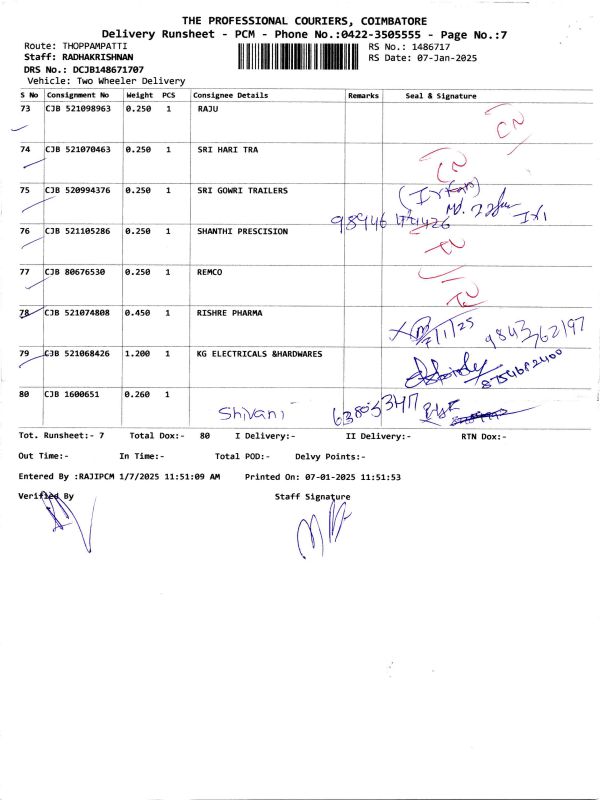 THE PROFESSIONAL COURIERS, COIMBATORE
Delivery Runsheet - PCM - Phone No.:0422-3505555 - Page No.:7
Route: THOPPAMPATTI RS No.: 1486717
Staff: RADHAKRISHNAN RS Date: 07-Jan-2025
DRS No.: DCJB148671707
Vehicle: Two Wheeler Delivery
S No Consignment No Weight PCS Consignee Details Remarks Seal & Signature
73 CJB 521098963 0.250 1 RAJU
74 CJB 521070463 0.250 1 SRI HARI TRA
75 CJB 520994376 0.250 1 SRI GOWRI TRAILERS
76 CJB 521105286 0.250 1 SHANTHI PRESCISION
77 CJB 80676530 0.250 1 REMCO
78 CJB 521074808 0.450 1 RISHRE PHARMA 7/1/25 9843762197
79 CJB 521068426 1.200 1 KG ELECTRICALS &HARDWARES
80 CJB 1600651 0.260 1 Shivani
Tot. Runsheet:- 7 Total Dox:- 80 I Delivery:- II Delivery:- RTN Dox:-
Out Time:- In Time:- Total POD:- Delvy Points:-
Entered By :RAJIPCM 1/7/2025 11:51:09 AM Printed On: 07-01-2025 11:51:53
Verified By Staff Signature